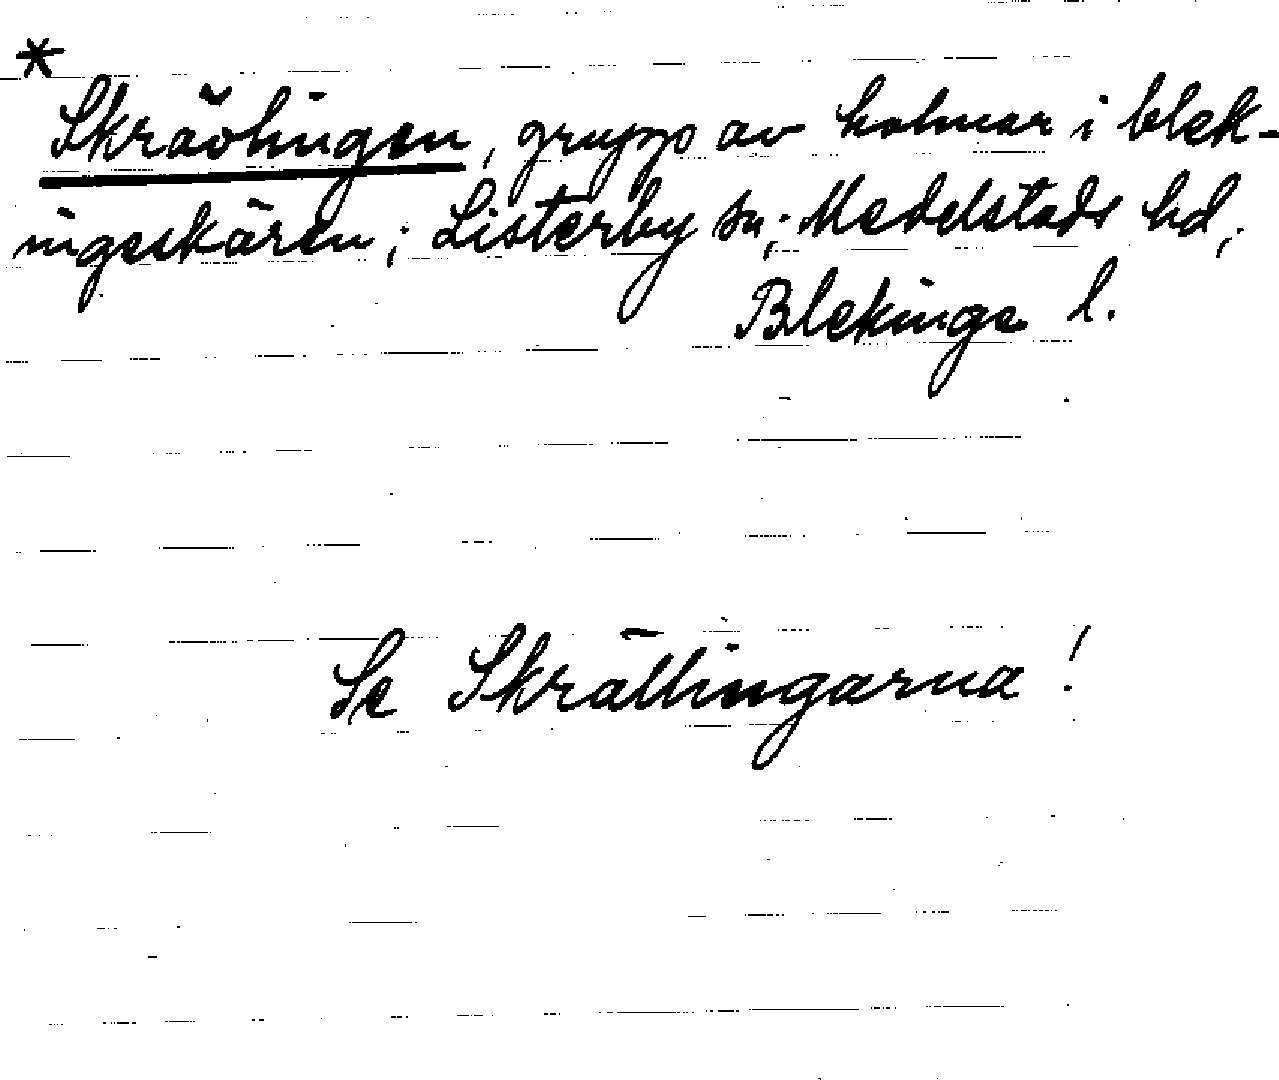 *
Skrävlingen, grupp av holmar i blek-
ingeskären; Listerby sn; Medelstads hd;
Blekinge l.
Se Skrällingarna!